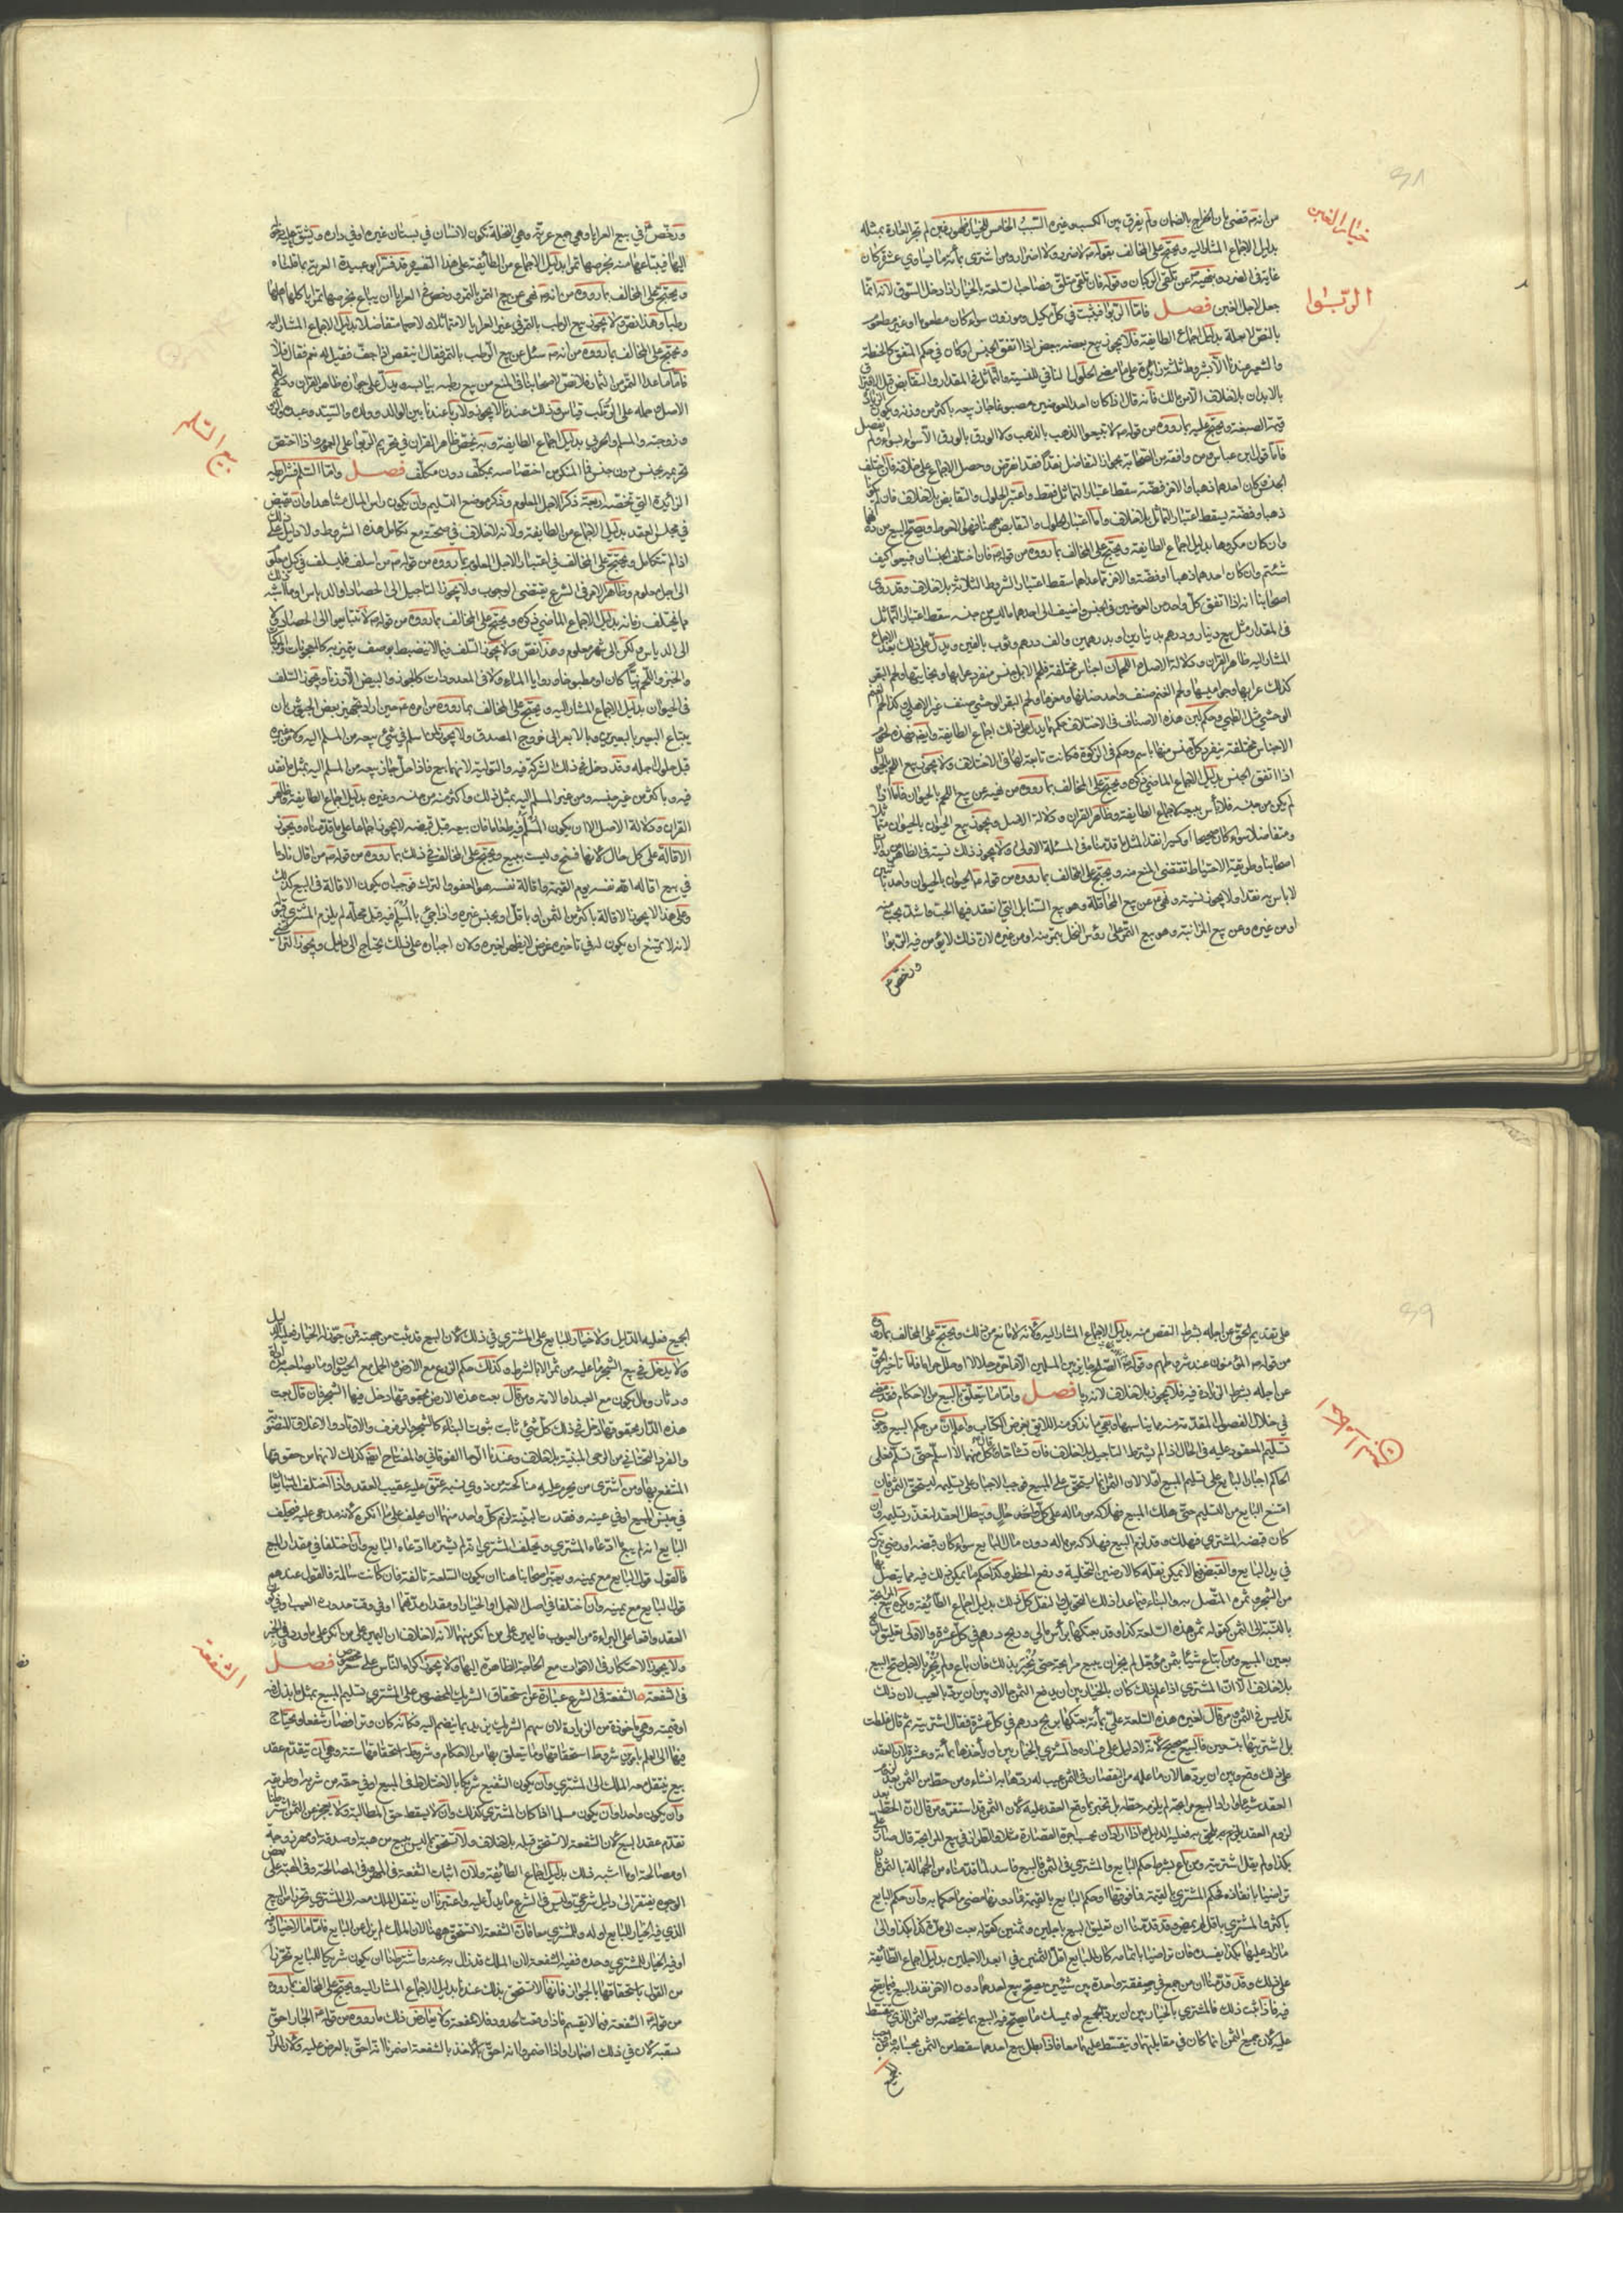 خيار الغبن
من انه قضى بان الخراج بالضمان ولم يفرق بين الكسب وغيره السبب الخامس للخيار ظهور غبن لم تجر العادة بمثله
بدليل الاجماع المشار اليه ويحتج على المخالف بقوله لا ضرر ولا اضرار ومن اشترى بمائة ما يساوي عشرة كان
غاية في الضرر وبنهيه عن تلقي الركبان وقوله فان تلقى متلق فصاحب السلعة بالخيار اذا دخل السوق لانه انما
الربوا
جعل لاجل الغبن فصل فاما الربوا فيثبت في كل مكيل وموزون سواء كان مطعوما او غير مطعوم
بالنص لا بعلة بدليل اجماع الطايفة فلا يجوز بيع بعضه ببعض اذا اتفق الجنس او كان في حكم المتفق كالحنطة
والشعير عندنا الا بشروط ثلثة زائدة على ما مضى الحلول النافي للنسية والتماثل في المقدار والتقابض قبل الافتراق
بالابدان بلا خلاف الا من مالك فانه قال اذا كان احد العوضين مصبوغا جاز بيعه باكثر من وزنه ويكون
قيمة الصبغة ويحتج عليه بما رووه من قوله لا تبيعوا الذهب بالذهب ولا الورق بالورق الا سواء بسواء ولم يفصل
فاما قول ابن عباس ومن وافقه من الصحابة بجواز التفاضل نقدا فقد انقرض وحصل الاجماع على خلافه فان اختلف
الجنس وكان احدهما ذهبا والاخر فضة سقط اعتبار التماثل فقط واعتبر الحلول والتقابض بلا خلاف فان لم يكونا
ذهبا وفضة يسقط اعتبار التماثل بلا خلاف واما اعتبار الحلول والتقابض ههنا فهو الاحوط ويصح البيع من دونهما
وان كان مكروها بدليل اجماع الطايفة ويحتج على المخالف بما رووه من قوله فان اختلف الجنسان فبيعوا كيف
شئتم وان كان احدهما ذهبا او فضة والاخر مما عداهما سقط اعتبار الشروط الثلاثة بلا خلاف وقد روى
اصحابنا انه اذا اتفق كل واحد من العوضين في الجنس واضيف الى احدهما ما ليس من جنسه سقط اعتبار التماثل
في المقدار مثل بيع دينار ودرهم بدينارين او بدرهمين والف درهم وثوب بالفين ويدل على ذلك بعد الاجماع
المشار اليه ظاهر القران ودلالة الاصل اللحمان اجناس مختلفة فلحم الابل جنس منفرد عرابها وبخاتيها ولحم البقر
كذلك عرابها وجواميسها ولحم الغنم صنف واحد ضانها ومعزها ولحم البقر الوحشي صنف غير الاهلي وكذا لحم الغنم
الوحشي مثل الظبي وحكم لبن هذه الاصناف في الاختلاف حكم لحمانها يدل على ذلك اجماع الطايفة وايضا فهذه لحوم
الاجناس مختلفة ينفرد كل جنس منها باسم وحكم في الزكوة فكانت تابعة لها في الاختلاف ولا يجوز بيع اللحم بالحيوان
اذا اتفق الجنس بدليل الاجماع الماضي ذكره ويحتج على المخالف بما رووه من نهيه عن بيع اللحم بالحيوان فاما اذا
لم يكن من جنسه فلا باس ببيعه لاجماع الطايفة وظاهر القران ودلالة الاصل ويجوز بيع الحيوان بالحيوان متماثلا
ومتفاضلا سواء كان صحيحا او كسيرا نقدا لمثل ما قدمناه في المسئلة الاولى ولا يجوز ذلك نسية في الظاهر من روايات
اصحابنا وطريقة الاحتياط تقتضي المنع منه ويحتج على المخالف بما رووه من قوله الحيوان بالحيوان واحد باثنين
لا باس به نقدا ولا يجوز نسية ونهى عن بيع المحاقلة وهو بيع السنابل التي انعقد فيها الحب واشتد بحب منه
او من غيره وعن بيع المزابنة وهو بيع التمر على رؤس النخل بتمر منه او من غيره لان ذلك لا يؤمن فيه الربوا
ورخص
ورخص في بيع العرايا وهي جمع عرية وهي النخلة تكون لانسان في بستان غيره او في داره ويشق دخوله
اليها فيبتاعها منه بخرصها تمرا بدليل الاجماع من الطائفة على هذا التفسير وقد فسر ابو عبيدة العرية بما قلناه
ويحتج على المخالف بما رووه من انه نهى عن بيع التمر بالتمر ورخص في العرايا ان يباع بخرصها تمرا ياكلها اهلها
رطبا وهذا نص ولا يجوز بيع الرطب بالتمر في غير العرايا لا متماثلا ولا متفاضلا بدليل الاجماع المشار اليه
ويحتج على المخالف بما رووه من انه سئل عن بيع الرطب بالتمر فقال اينقص اذا جف فقيل له نعم فقال فلا
فاما ما عدا التمر من الثمار فلا نص لاصحابنا في المنع من بيع رطبه بيابسه ويدل على جوازه ظاهر القران ودلالة
الاصل وحمله على الرطب قياس وذلك عندنا لا يجوز ولا ربا عندنا بين الوالد وولده والسيد وعبده والزوج
وزوجته والمسلم والحربي بدليل اجماع الطايفة ومن يخص ظاهر القران في تحريم الربوا على العموم واذا اختص
بيع السلم
تحريمه بجنس دون جنس فما المنكر من اختصاصه بمكلف دون مكلف فصل واما السلم فشرائطه
الزائدة التي تخصه اربعة ذكر الاجل المعلوم وذكر موضع التسليم وان يكون راس المال مشاهدا وان يقبض
في مجلس العقد بدليل الاجماع من الطايفة ولانه لا خلاف في صحته مع تكامل هذه الشروط ولا دليل على ذلك
اذا لم تتكامل ويحتج على المخالف في اعتبار الاجل المعلوم بما رووه من قوله من اسلف فليسلف في كيل معلوم
الى اجل معلوم وظاهر الامر في الشرع يقتضي الوجوب ولا يجوز التاجيل الى الحصاد او الدياس او ما اشبه ذلك
مما يختلف زمانه بدليل الاجماع الماضي ذكره ويحتج على المخالف بما رووه من قوله لا تتبايعوا الى الحصاد ولا
الى الدياس ولكن الى شهر معلوم وهذا نص ولا يجوز السلف فيما لا ينضبط بوصف يتميز به كالمعجونات والمركبات
والخبز واللحم نيا كان او مطبوخا وروايا الماء ولا في المعدودات كالجوز والبيض الا وزنا ويجوز السلف
في الحيوان بدليل الاجماع المشار اليه ويحتج على المخالف بما رووه من امره حين اراد تجهيز بعض الجيوش بان
يبتاع البعير بالبعيرين وبالابعر الى خروج المصدق ولا يجوز لمن اسلم في شيء بيعه من المسلم اليه ولا من غيره
قبل حلول اجله وقد دخل في ذلك الشركة فيه والتولية لانهما بيع فاذا حل جاز بيعه من المسلم اليه بمثل ما نقد
فيه وباكثر من غير جنسه ومن غير المسلم اليه بمثل ذلك واكثر منه من جنسه وغيره بدليل اجماع الطايفة وظاهر
القران ودلالة الاصل الا ان يكون المسلم فيه طعاما فان بيعه قبل قبضه لا يجوز اجماعا على ما قدمناه ويجوز
الاقالة على كل حال لانها فسخ وليست ببيع ويحتج على المخالف في ذلك بما رووه من قوله من اقال نادما
في بيع اقاله الله نفسه يوم القيمة واقالة نفسه هو العفو والترك فوجب ان يكون الاقالة في البيع كذلك
وعلى هذا لا يجوز الاقالة باكثر من الثمن او باقل او بجنس غيره واذا جيء بالمسلم فيه قبل محله لم يلزم المشتري قبوله
لانه لا يمتنع ان يكون له في تاخيره غرض لا يظهر لغيره ولان اجباره على ذلك يحتاج الى دليل ويجوز التراضي
على تقديم الحق عن اجله بشرط النقص منه بدليل الاجماع المشار اليه ولانه لا مانع من ذلك ويحتج على المخالف بما رووه
من قوله المؤمنون عند شروطهم وقوله الصلح جايز بين المسلمين الا ما احل حراما او حرم حلالا فاما تاخير الحق
عن اجله بشرط الزيادة فيه فلا يجوز بلا خلاف لانه ربا فصل واما ما يتعلق بالبيع من الاحكام فقد مضى
في خلال الفصول المقدمة منه ما يناسبها وبقي ما نذكر منه اللائق بغرض الكتاب واعلم ان من حكم البيع وجوب
تسليم المعقود عليه في الحال اذا لم يشترط التاجيل بلا خلاف فان تشاحا قال كل منهما لا اسلم حتى تسلم فعلى
الحاكم اجبار البايع على تسليم المبيع اولا لان الثمن انما يستحق على المبيع فوجب الاجبار على تسليمه ليستحق الثمن فان
امتنع البايع من التسليم حتى هلك المبيع فهلاكه من ماله على كل حال ويبطل العقد لتعذر تسليمه وان
كان قبضه المشتري فهلك وقد لزم البيع فهلاكه من ماله دون مال البايع سواء كان قبضه او رضي بتركه
في يد البايع والقبض فيما لا يمكن نقله كالارضين التخلية ورفع الحظر وكذا حكم ما يمكن ذلك فيه مما يتصل بها
من الشجر وثمره المتصل به والبناء وفيما عدا ذلك التحويل والنقل كل ذلك بدليل اجماع الطائفة ويكره بيع المرابحة
بالنسبة الى الثمن كقوله ثمن هذه السلعة كذا وقد بعتكها براس مالي وربح درهم في كل عشرة والاولى تعليق الربح
بعين المبيع ومن ابتاع شيئا بثمن مؤجل لم يجز ان يبيع مرابحة حتى يخبر بذلك فان باع ولم يخبر بالاجل صح البيع
بلا خلاف الا ان المشتري اذا علم ذلك كان بالخيار بين ان يدفع الثمن حالا وبين ان يرد بالعيب لان ذلك
تدليس في الثمن ومن قال لغيره هذه السلعة علي بمائة بعتكها بربح درهم في كل عشرة فقال اشتريته ثم قال غلطت
بل اشتريتها بتسعين فالبيع صحيح لانه لا دليل على فساده والمشتري بالخيار بين ان ياخذها بمائة وعشرة لان العقد
على ذلك وقع وبين ان يردها لان ما علمه من النقصان في الثمن عيب له ردها به ان شاء ومن حط من الثمن بعد لزوم
العقد شيئا واراد البيع مرابحة لم يلزمه حطه بل تخبر بما وقع العقد عليه لان الثمن قد استقر ومن قال ان الحط بعد
لزوم العقد يلزم ويلحق به فعليه الدليل واذا اراد ان يحسب اجرة القصارة مثلا والطراز في بيع المرابحة قال صارت علي
بكذا ولم يقل اشتريته ومن باع بشرط حكم البايع والمشتري في الثمن فالبيع فاسد لما قدمناه من الجهالة بالثمن فان
تراضيا بانفاذه فحكم المشتري بالقيمة فما فوقها او حكم البايع بالقيمة فما دونها مضى ما حكما به وان حكم البايع
باكثر والمشتري باقل لم يمض وقد قدمنا ان تعليق البيع باجلين وثمنين كقوله بعت الى مدة كذا بكذا والى
ما زاد عليها بكذا يفسده فان تراضيا بانفاذه كان للبايع اقل الثمنين في ابعد الاجلين بدليل اجماع الطائفة
على ذلك وقد قدمنا ان من جمع في صفقة واحدة بين شيئين يصح بيع احدهما دون الاخر نفذ البيع فيما يصح
فيه فاذا ثبت ذلك فالمشتري بالخيار بين ان يرد الجميع او يمسك ما يصح فيه البيع بما يخصه من الثمن الذي يتقسط
عليه لان جميع الثمن انما كان في مقابلتهما ويتقسط عليهما معا فاذا بطل بيع احدهما سقط من الثمن بحسابه
الجميع فعليه الدليل ولا خيار للبايع على المشتري في ذلك لان البيع قد ثبت من جهته فمن جوز له الخيار فعليه الدليل
ولا يدخل في بيع الشجر ما عليه من ثمر الا بالشرط وكذلك حكم الزرع مع الارض والحمل مع الحيوان وما يصاحبه من الة
وثاب ومال يكون مع العبد او الامة ومن قال بعت هذه الارض بحقوقها دخل فيها الشجر فان قال بعت
هذه الدار بحقوقها دخل في ذلك كل شيء ثابت ثبوت البناء كالشجر والرفوف والاوتاد والاغلاق المنصوبة
والفرد التحتاني من الرحى المبنية بلا خلاف وعندنا ان الرحى الفوقاني والمفتاح ايضا كذلك لانهما من حقوقها
المنتفع بها ومن اشترى من يحرم عليه مناكحته من ذوي نسبه عتق عليه عقيب العقد واذا اختلف المتبايعان
في جنس المبيع او في عينه وفقدت البينة لزم كل واحد منهما ان يحلف على ما انكره لانه مدعى عليه فيحلف
البايع انه لم يبع ما ادعاه المشتري ويحلف المشتري انه لم يشتر ما ادعاه البايع وان اختلفا في مقدار المبيع
فالقول قول البايع مع يمينه ويعتبر اصحابنا هنا ان يكون السلعة تالفة فان كانت سالمة فالقول عندهم
قول البايع مع يمينه وان اختلفا في اصل الاجل او الخيار او مقدار مدتهما او في وقت حدوث العيب او في كون
العقد واقعا على البراءة من العيوب فاليمين على من انكر منهما لانه لا خلاف ان اليمين على من انكر على ما ورد في الخبر
ولا يجوز الاحتكار في الاقوات مع الحاجة الظاهرة اليها ولا يجوز اكراه الناس على سعر مخصوص فصل
الشفعة
في الشفعة الشفعة في الشرع عبارة عن استحقاق الشريك المخصوص على المشتري تسليم المبيع بمثل ما بذل فيه
او قيمته وهي ماخوذة من الزيادة لان سهم الشريك يزيد بما يضم اليه فكانه كان وترا فصار شفعا ويحتاج
فيها الى العلم بامرين شروط استحقاقها وما يتعلق بها من الاحكام وشروط استحقاقها ستة وهي ان يتقدم عقد
بيع ينتقل معه الملك الى المشتري وان يكون الشفيع شريكا بالاختلاط في المبيع او في حقه من شربه او طريقه
وان يكون واحدا وان يكون مسلما اذا كان المشتري كذلك وان لا يسقط حق المطالبة ولا يعجز عن الثمن اشترطنا
تقدم عقد البيع لان الشفعة لا تستحق قبله بلا خلاف ولا تستحق بما ليس ببيع من هبة او صدقة او مهر زوجة
او مصالحة او ما اشبه ذلك بدليل اجماع الطائفة ولان اثبات الشفعة في المهور وفي المصالحة وفي الهبة على بعض
الوجوه يفتقر الى دليل شرعي وليس في الشرع ما يدل عليه واعتبرنا ان ينتقل الملك معه الى المشتري تحرزا من البيع
الذي فيه الخيار للبايع او له وللمشتري معا فان الشفعة لا تستحق ههنا لان الملك لم يزل عن البايع فاما ما لا خيار فيه
او فيه الخيار للمشتري وحده ففيه الشفعة لان الملك قد زال به عنه واشترطنا ان يكون شريكا للبايع تحرزا
من القول باستحقاقها بالجوار فانها لا تستحق بذلك عندنا بدليل الاجماع المشار اليه ويحتج على المخالف بما رووه
من قوله الشفعة فيما لا يقسم فاذا وقعت الحدود فلا شفعة ولا يعارض ذلك ما رووه من قوله الجار احق
بسقبه لان في ذلك اضمارا واذا اضمروا انه احق بالاخذ بالشفعة اضمرنا انه احق بالعرض عليه ولان المراد